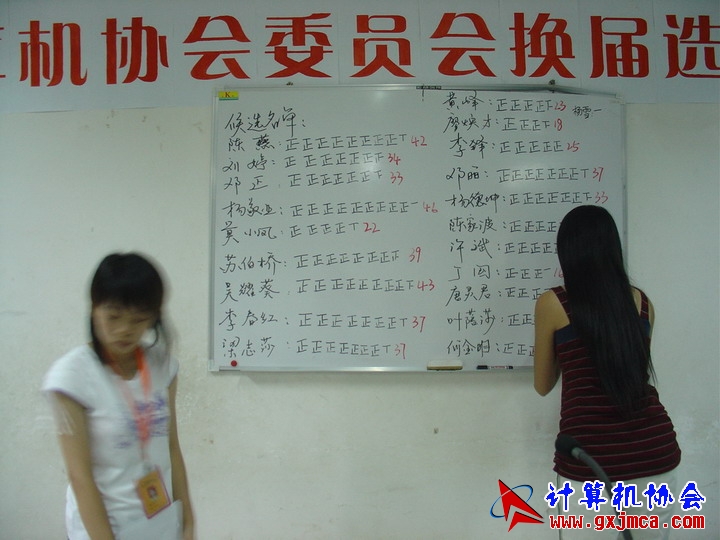 机协会委员会换届选
候选名单:
陈燕:正正正正正正正正丅 42
刘婷:正正正正正正𠄟 34
邓正.正正正正正正下 33
杨家恒:正正正正正正正正正一 46
莫小凤:正正正正丅 22
苏伯桥:正正正正正正正 39
吴耀葵.正正正正正正正正下 43
李春红:正正正正正正正丅 37
梁志莎:正正正正正正正丅 37
黄峰:正正正正下 23
廖焕才:正正正下 18
李锋:正正正正正 25
邓丽:正正正正正正正丅 37
杨德坤:正正正正正正下 33
陈家波:正正正正
许斌:正正正正
丁园:正正正一
唐灵君:正正正
叶蓓莎:正正
何金明:正正
计算机协会
www.gxjmca.com